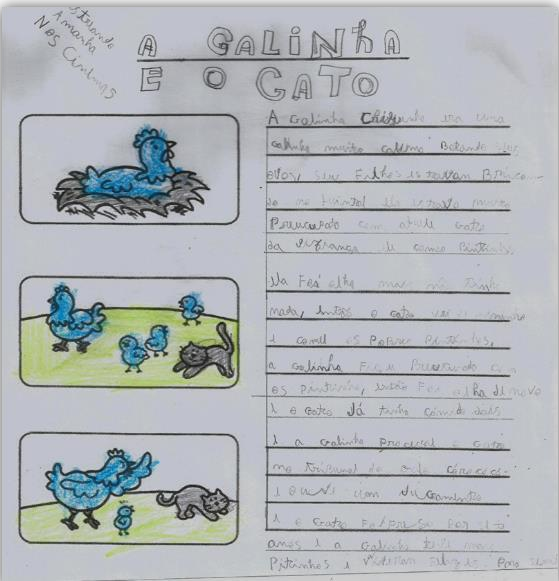 Estreando
Amanha
NOS Cinemas
A GALINHA
E O GATO
A Galinha era uma
galinha muito calma Botando seus
ovos, seus Filhos estavam Brincan-
do no quintal ela estava muito
com aquele Gato
da vizinhança de comeu Pintinhos
ela Foi olha mais não tinha
nada, então o gato veio
e comeu os Pobres Pintinhos,
a galinha Ficou com
os Pintinho, então Foi olha de novo
e o Gato Já tinha comido dois
e a galinha o Gato
no tribunal de
e ouve um Jugamento
e o Gato Foi Preso Por
anos e a Galinha teve mais
Pitinhos e viveram Felizes Para